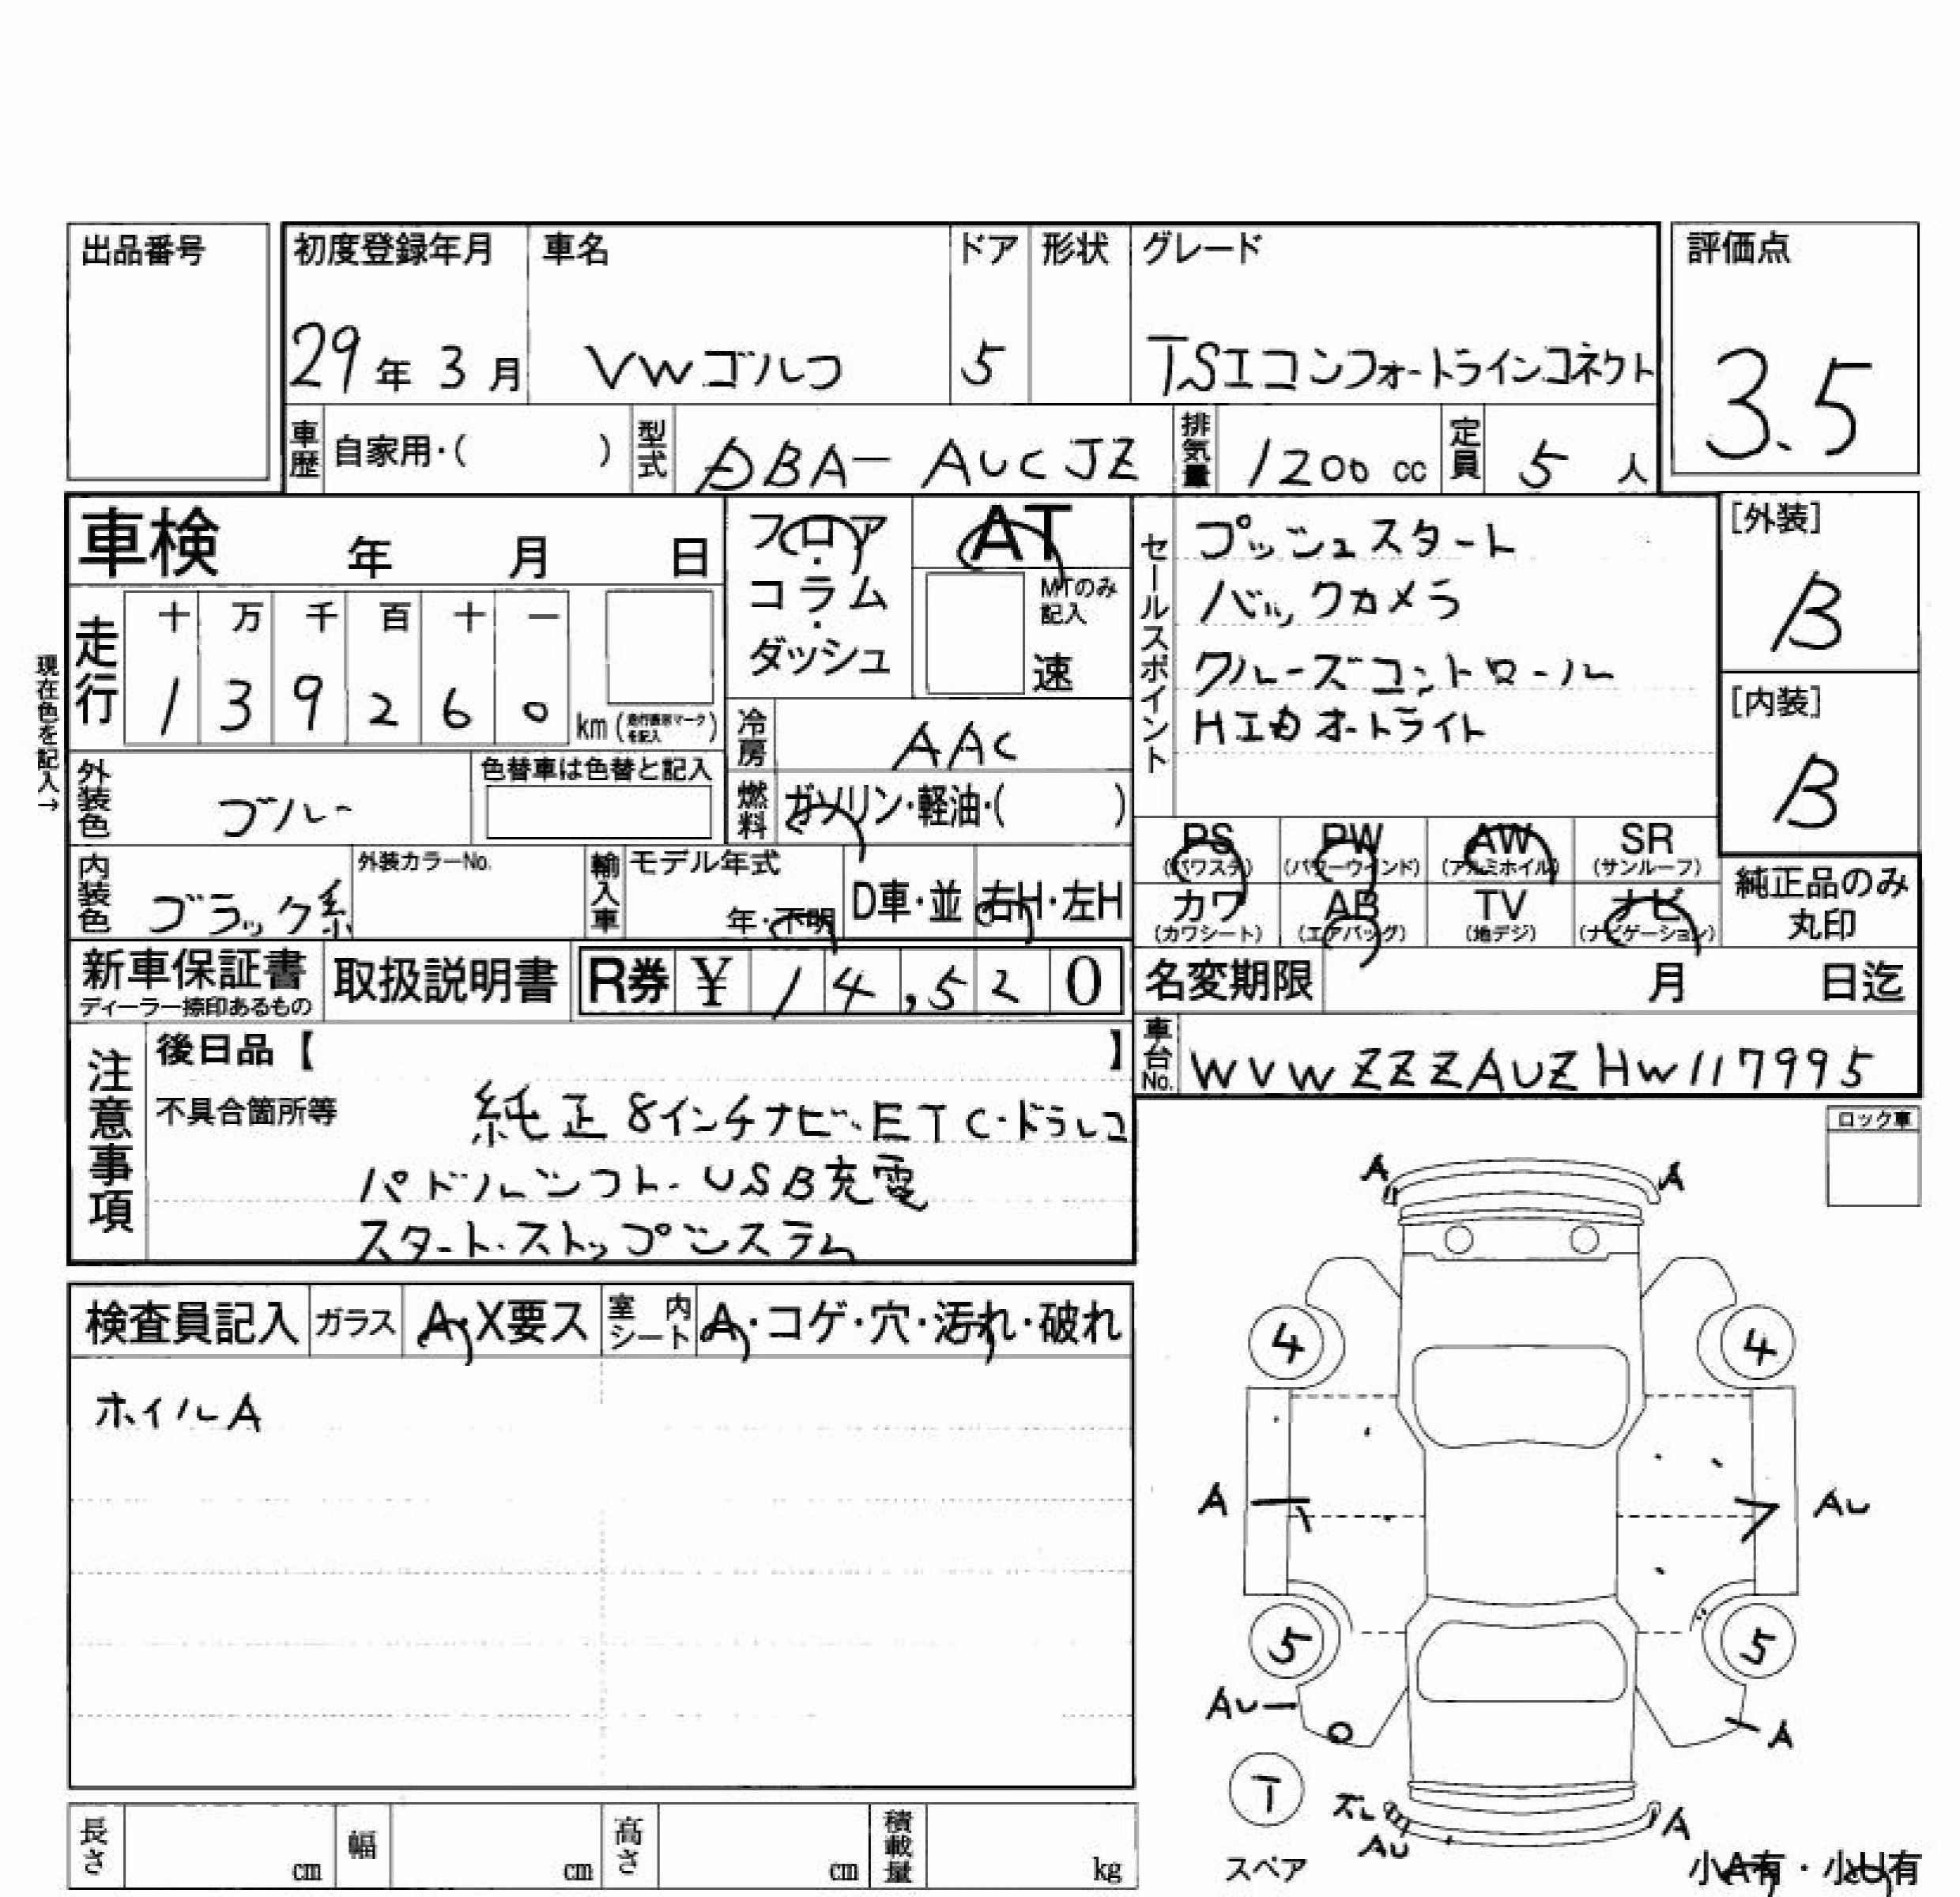 出品番号
初度登録年月 車名 ドア 形状 グレード 評価点
29年 3月 VWゴルフ 5 TSIコンフォートラインコネクト 3.5
車歴 自家用・( ) 型式 DBA-AUCJZ 排気量 1200 cc 定員 5 人
車検 年 月 日
フロア・コラム・ダッシュ
AT
MTのみ記入
速
セールスポイント
プッシュスタート
バックカメラ
クルーズコントロール
HIDオートライト
[外装]
B
[内装]
B
現在色を記入→
走行 十 万 千 百 十 一
1 3 9 2 6 0 km (走行表示マークを記入)
冷房 AAC
外装色 ブルー 色替車は色替と記入
燃料 ガソリン・軽油・( )
PS PW AW SR
(パワステ) (パワーウインド) (アルミホイル) (サンルーフ)
カワ AB TV ナビ
(カワシート) (エアバッグ) (地デジ) (ナビゲーション)
純正品のみ丸印
内装色 ブラック系 外装カラーNo. 輸入車 モデル年式 年・不明 D車・並 右H・左H
新車保証書 取扱説明書 R券 ¥ 14,520
ディーラー捺印あるもの
名変期限 月 日迄
車台No. WVWZZZAUZHW117995
注意事項
後日品【 】
不具合箇所等 純正8インチナビ・ETC・ドラレコ
パドルシフト・USB充電
スタート・ストップシステム
ロック車
検査員記入 ガラス A・X要ス 室内シート A・コゲ・穴・汚れ・破れ
ホイルA
A A
4 4
A AU
5 5
AU A
T ズレ A
AU
スペア
小A有・小U有
長さ cm 幅 cm 高さ cm 積載量 kg